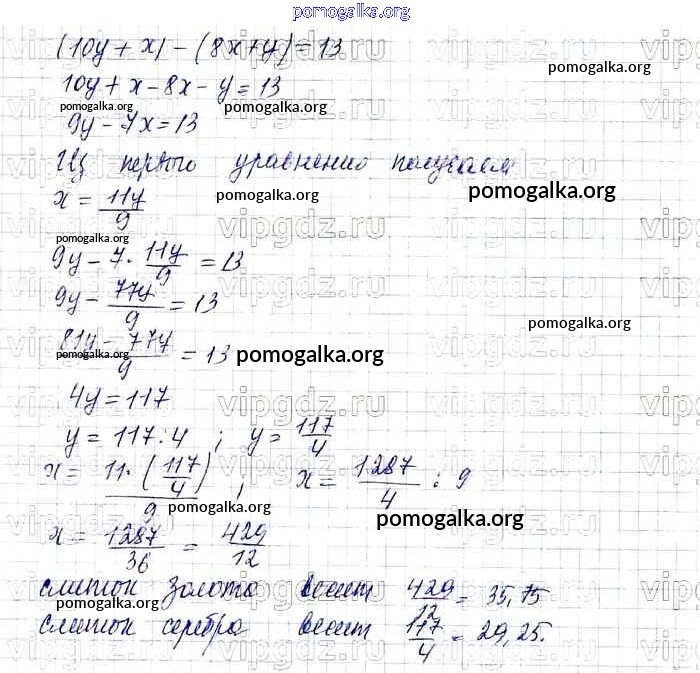 pomogalka.org
(10y + x) - (8x + y) = 13
10y + x - 8x - y = 13
9y - 7x = 13
Из первого уравнения получаем
x = 11y/9
9y - 7 · 11y/9 = 13
9y - 77y/9 = 13
81y - 77y/9 = 13
4y = 117
y = 117 : 4 ; y = 117/4
x = 11 · (117/4)/9 ; x = 1287/4 : 9
x = 1287/36 = 429/12
слиток золота весит 429/12 = 35,75
слиток серебра весит 117/4 = 29,25.